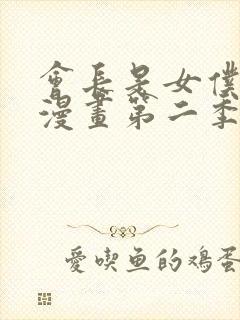 會長是女僕
漫畫第二季
愛喫鱼的鸡蛋